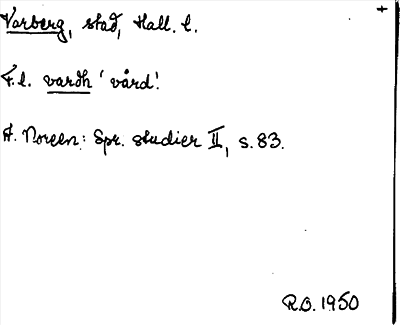 Varberg, stad, Hall. l.
F.l. vardh 'vård'.
A. Noreen: Spr. studier II, s. 83.
R.O. 1950